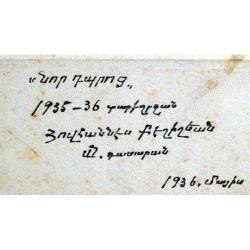 «Նոր Դպրոց»
1935-36 տարեշրջան
Յովհաննէս
Ա. դասարան
1936. Մայիս